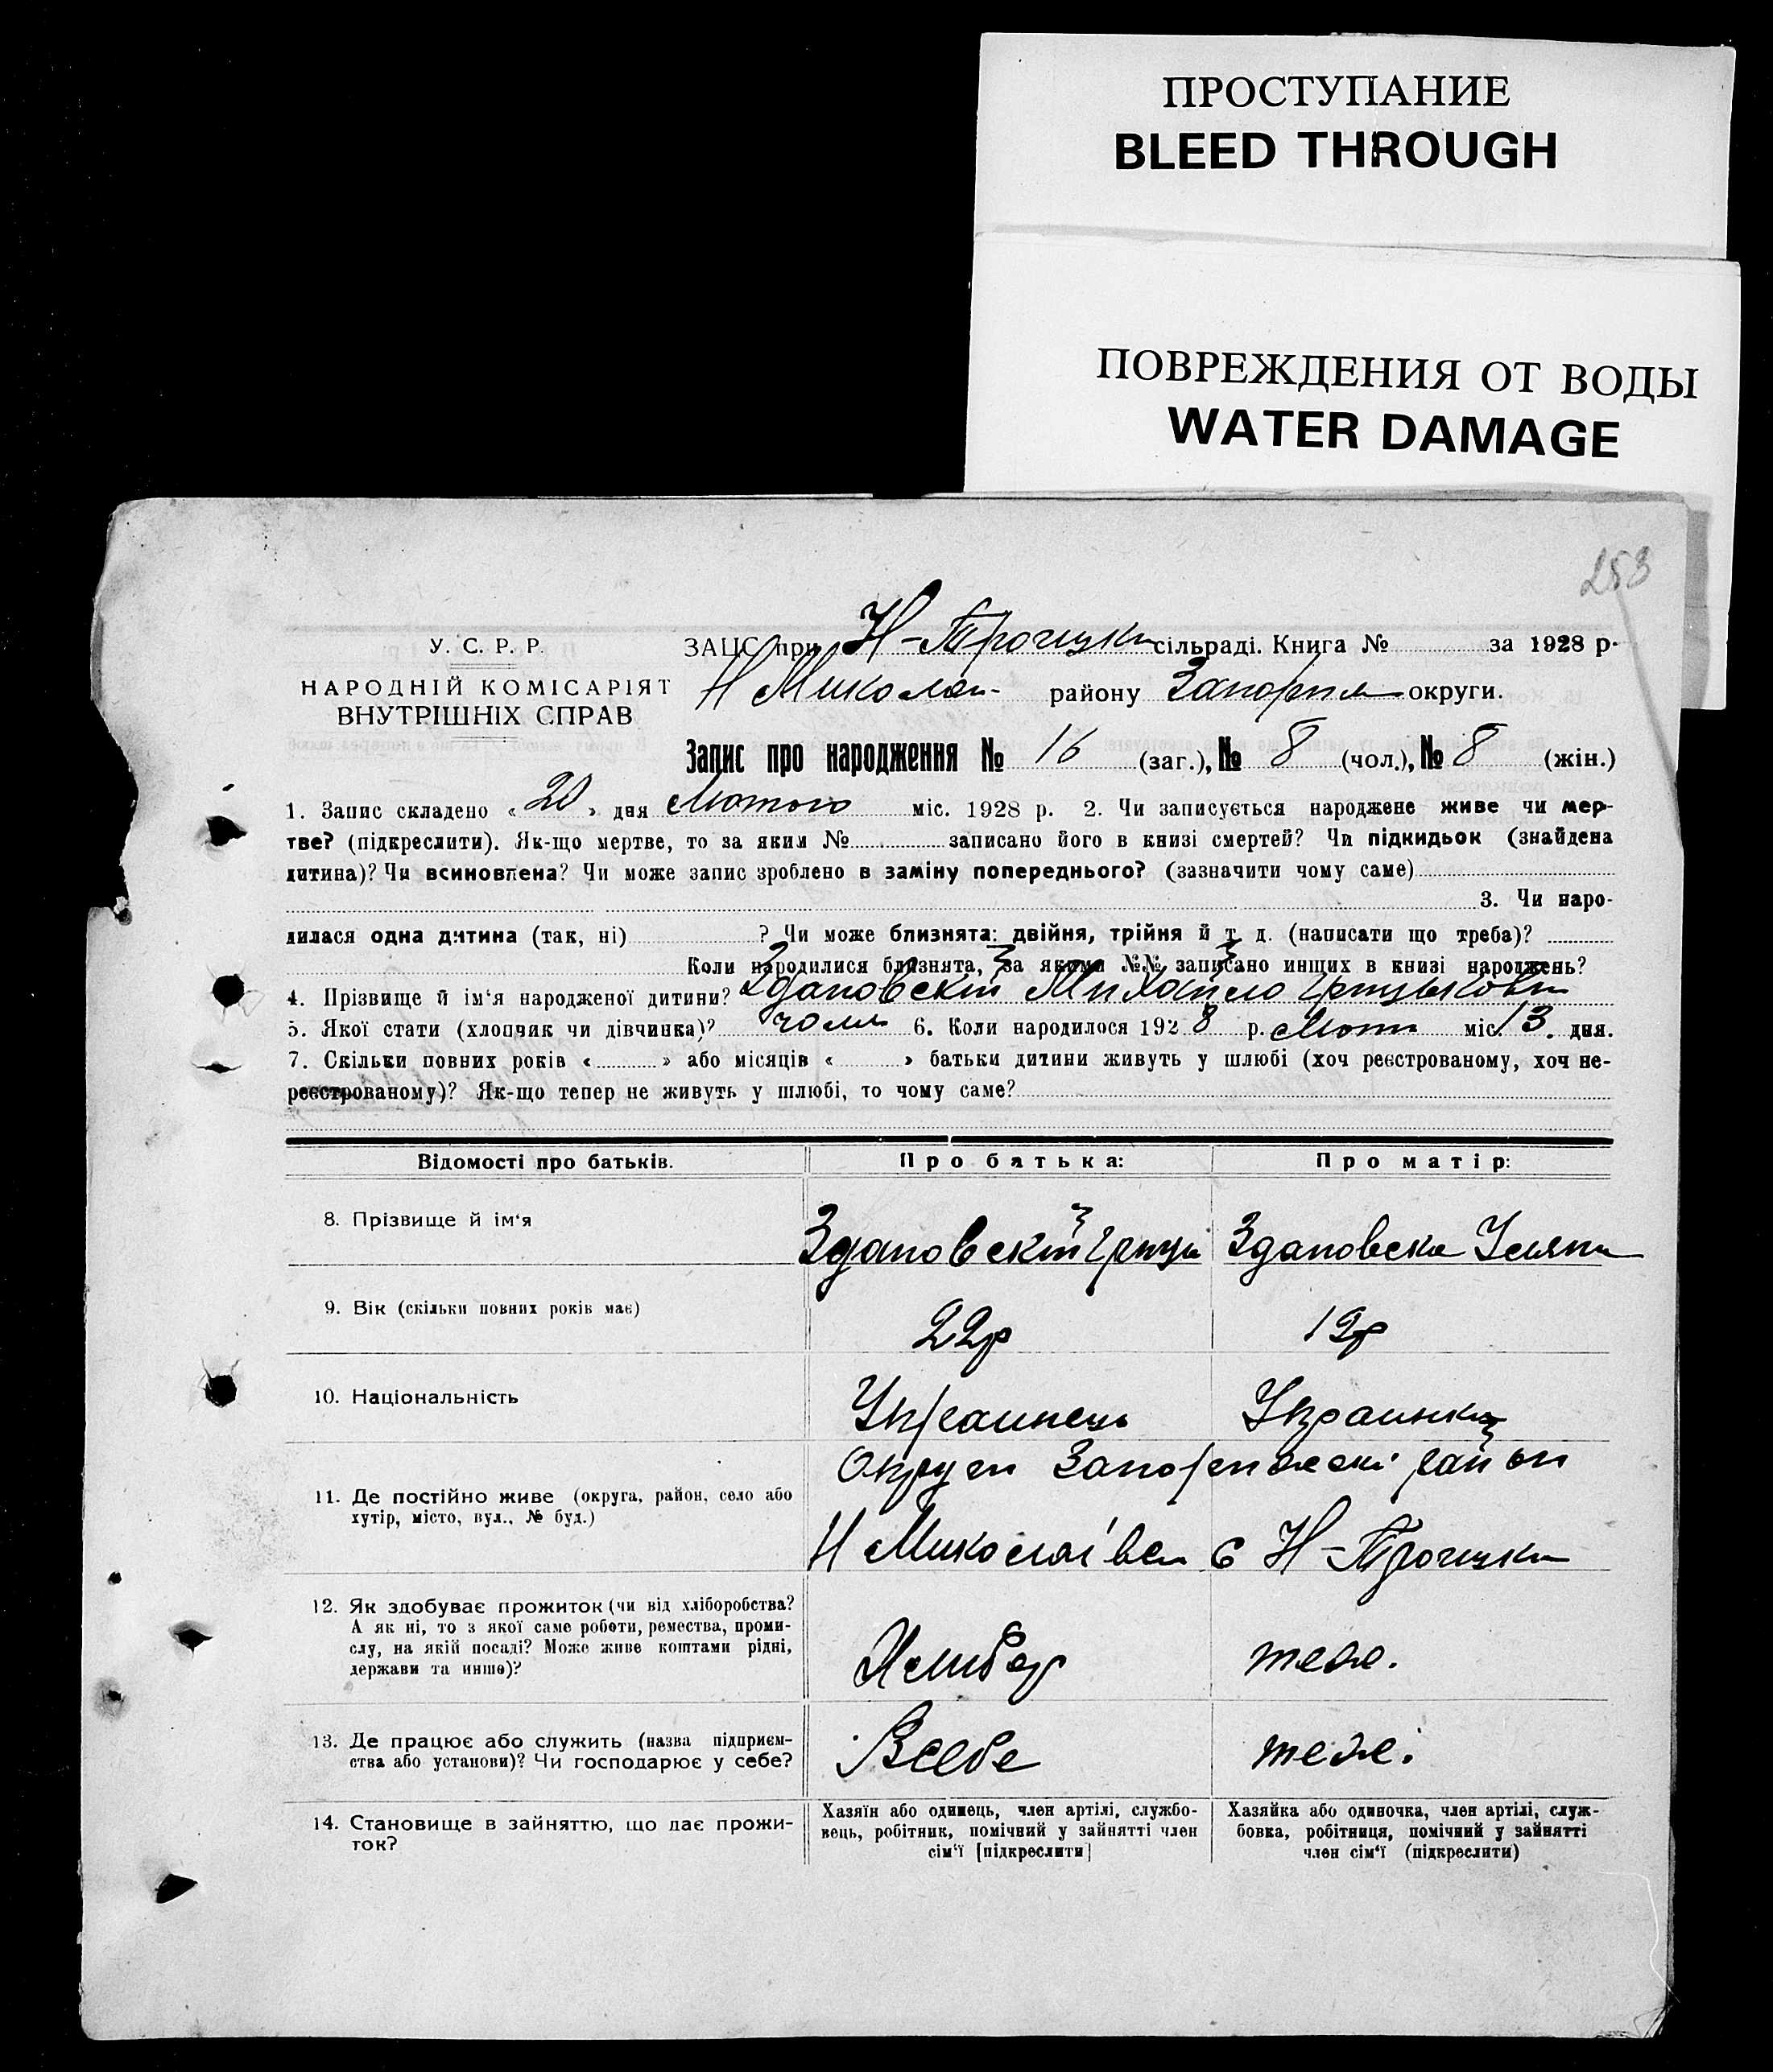 ПРОСТУПАНИЕ
BLEED THROUGH
ПОВРЕЖДЕНИЯ ОТ ВОДЫ
WATER DAMAGE
253
У. С. Р. Р.
НАРОДНІЙ КОМІСАРІЯТ
ВНУТРІШНІХ СПРАВ
ЗАПИС при Н-Троицки сільраді. Книга № за 1928 р.
Н Миколаї- району Запоріж округи.
Запис про народження № 16 (заг.), № 8 (чол.), № 8 (жін.)
1. Запис складено « 20 » дня Лютого міс. 1928 р. 2. Чи записується народжене живе чи мер-
тве? (підкреслити). Як-що мертве, то за яким № записано його в книзі смертей? Чи підкидьок (знайдена
дитина)? Чи всиновлена? Чи може запис зроблено в заміну попереднього? (зазначити чому саме)
3. Чи наро-
дилася одна дитина (так, ні) ? Чи може близнята: двійня, трійня й т. д. (написати що треба)?
Коли народилися близнята, за якими №№ записано инших в книзі народжень?
4. Прізвище й ім'я народженої дитини? Здановскій Михайло
5. Якої стати (хлопчик чи дівчинка)? чолл 6. Коли народилося 1928 р. Лют міс. 13. дня.
7. Скільки повних років « » або місяців « » батьки дитини живуть у шлюбі (хоч реєстрованому, хоч не-
реєстрованому)? Як-що тепер не живуть у шлюбі, то чому саме?
Відомості про батьків.
Про батька:
Про матір:
8. Прізвище й ім'я
Здановскій Гриць
Здановска Уляна
9. Вік (скільки повних років має)
22р
19р
10. Національність
Украинець
Украинка
11. Де постійно живе (округа, район, село або
хутір, місто, вул., № буд.)
Округи Запоріжскі район
Н Миколаївсь с Н-Троицки
12. Як здобуває прожиток (чи від хліборобства?
А як ні, то з якої саме роботи, ремества, проми-
слу, на якій посаді? Може живе коштами рідні,
держави та инше)?
Хлибор
теж.
13. Де працює або служить (назва підприєм-
ства або установи)? Чи господарює у себе?
Всебе
теж.
14. Становище в зайняттю, що дає прожи-
ток?
Хазяїн або одинець, член артілі, службо-
вець, робітник, помічний у зайнятті член
сім'ї [підкреслити]
Хазяйка або одиночка, член артілі, служ-
бовка, робітниця, помічний у зайнятті
член сім'ї (підкреслити)